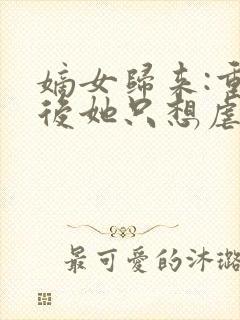 嫡女歸來:重
後她只想虐
最可愛的沐璐